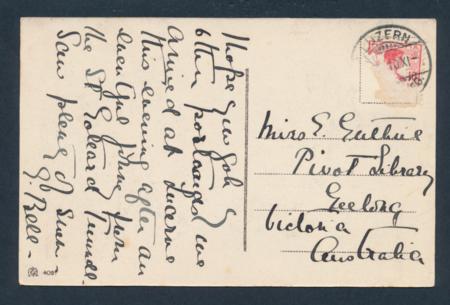 I hope you got my
other postcard we
arrived at Lucerne
this evening after an
excellent journey from
the St Gotthard Tunnel
Saw plenty of snow
G. Bell -
LUZERN
XI
Miss E. Guthrie
Pivot Library
Geelong
Victoria
Australia